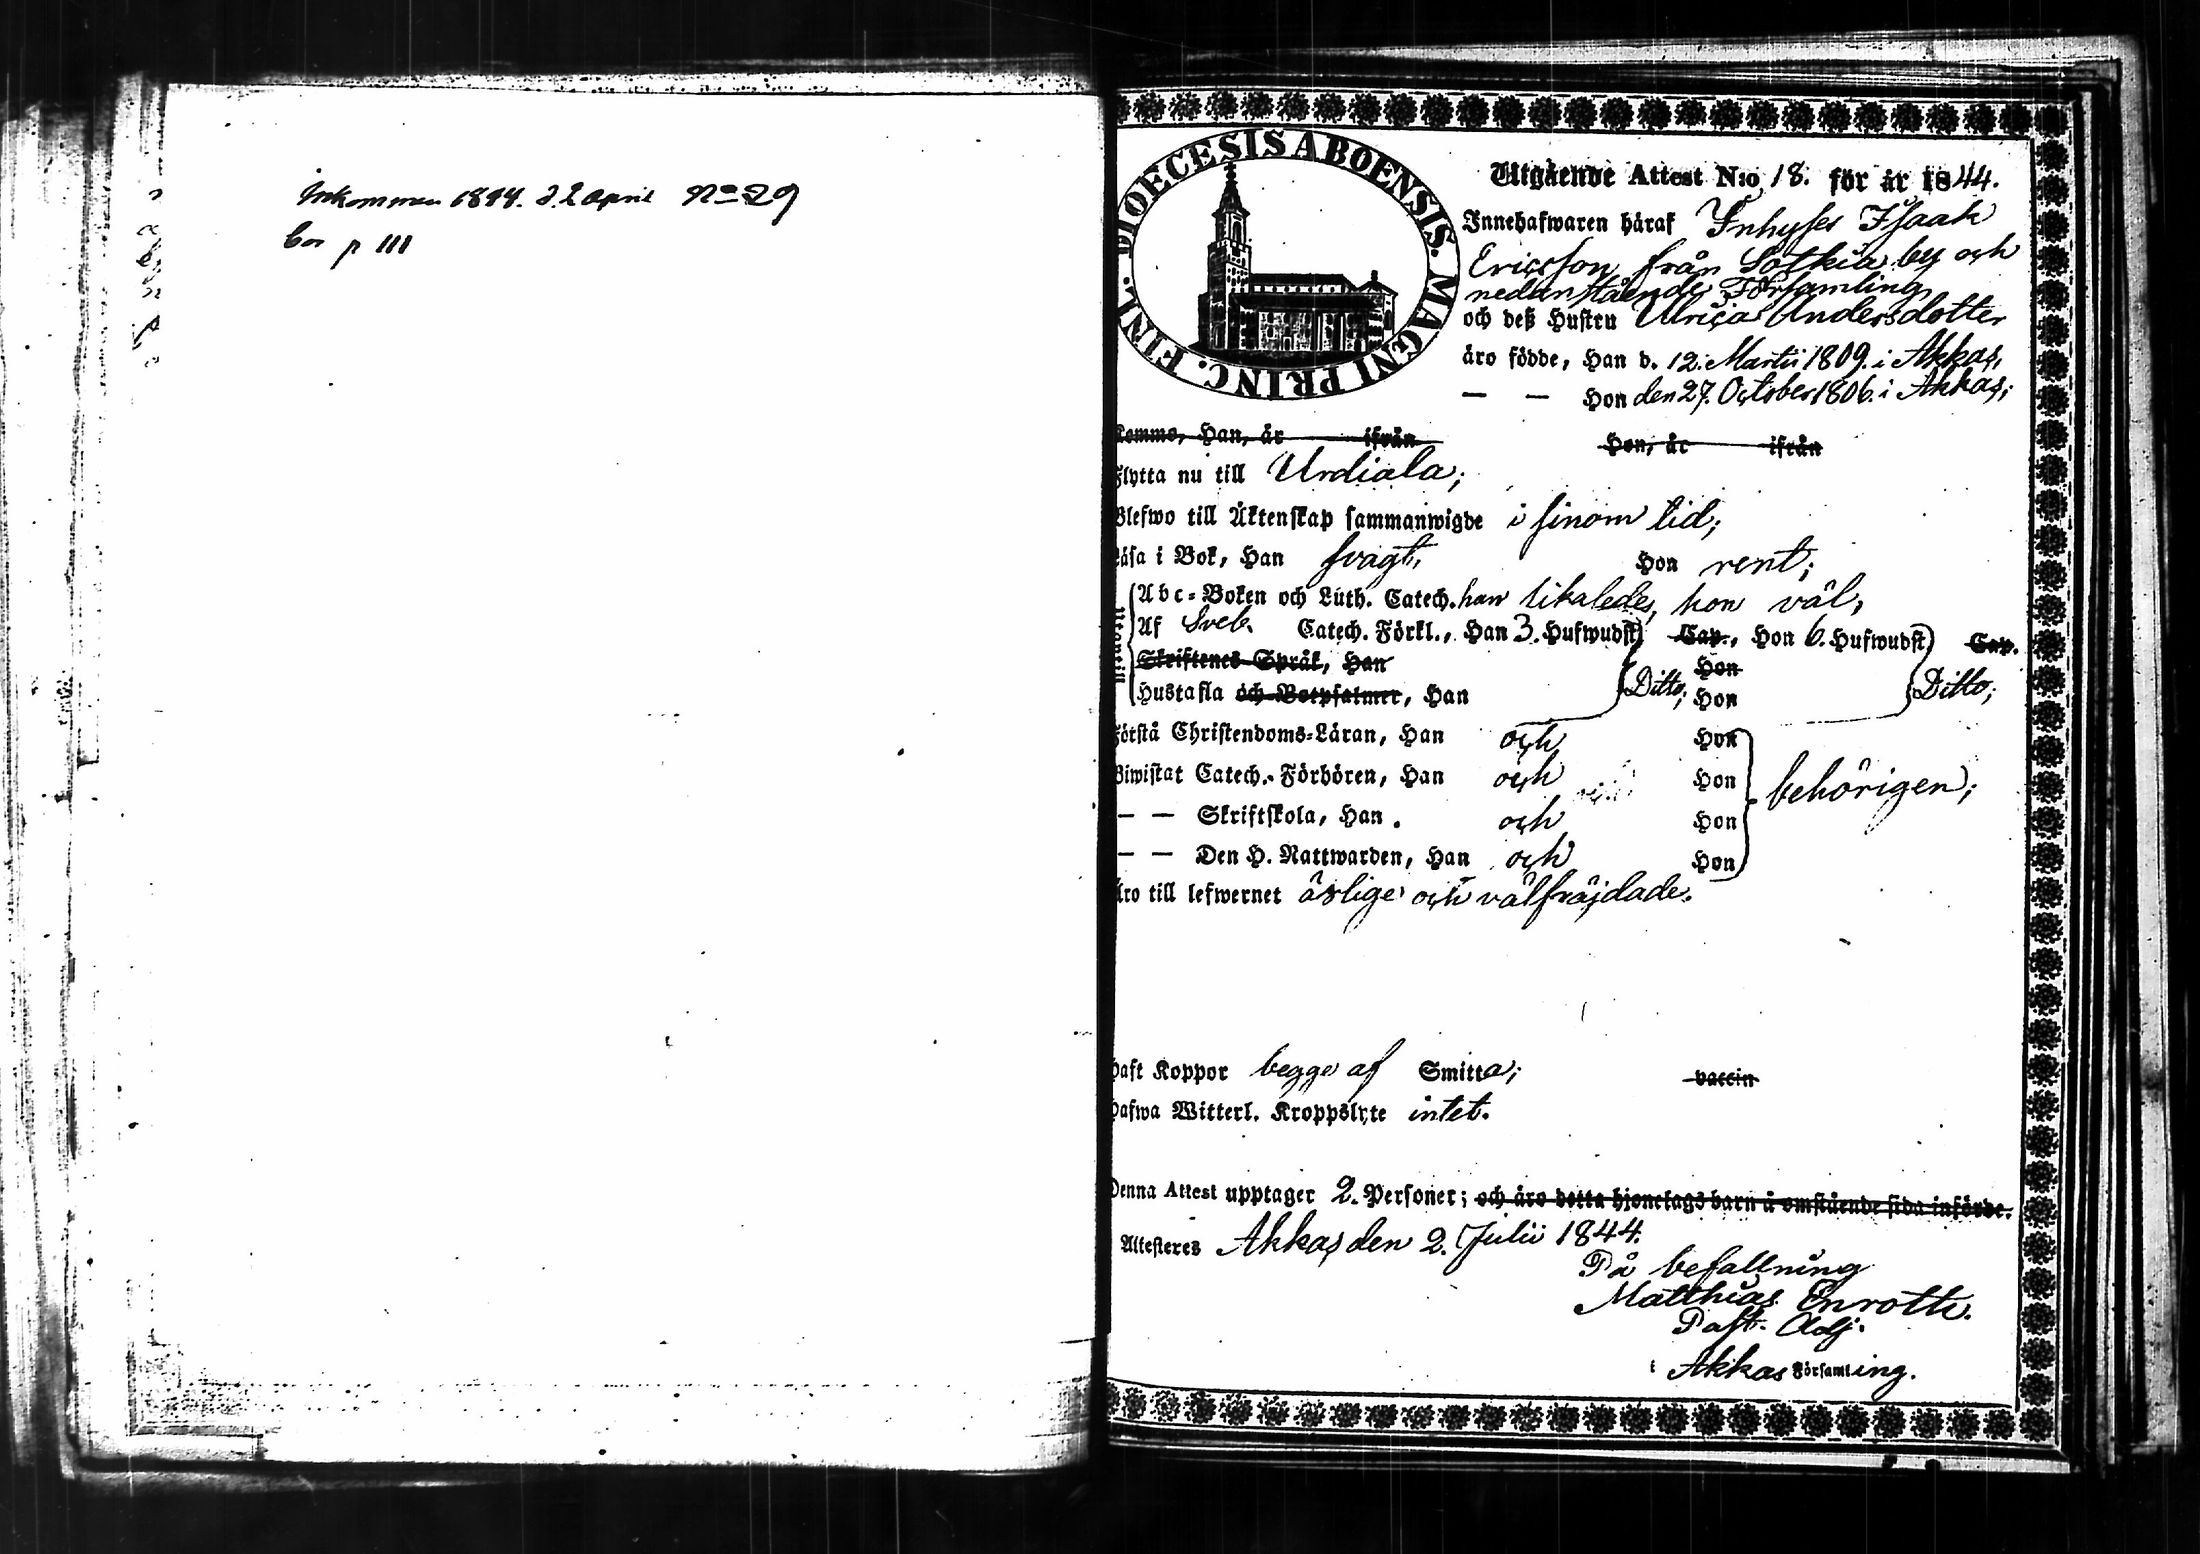 Inkommen 1844. d. 2 April No 29
bor p 111
DIOECESIS ABOENSIS. MAGNI PRINC. FINL.
Utgående Attest N:o 18. för år 1844.
Innehafwaren häraf Inhyses Isaak
Ericsson från Sotkia by och
nedanstående Församling
och deß Hustru Ulrica Andersdotter
äro födde, Han d. 12. Martii 1809. i Akkas,
— — Hon den 27. October 1806. i Akkas;
Komme, Han, år ifrån Hon, år ifrån
Flytta nu till Urdiala;
Blefwo till Äktenskap sammanwigde i sinom tid;
Läsa i Bok, Han svagt, Hon rent;
Abc-Boken och Luth. Catech. han likaledes, hon väl,
Af Sveb. Catech. Förkl., Han 3. Hufwudst) Cap., Hon 6. Hufwudst) Cap.
Skriftenes Språk, Han Hon
Hustafla och Botpsalmer, Han Ditto; Hon Ditto;
Förstå Christendoms-Läran, Han och Hon
Biwistat Catech.-Förhören, Han och Hon behörigen;
— — Skriftskola, Han. och Hon
— — Den H. Nattwarden, Han och Hon
Äro till lefwernet ärlige och välfräjdade.
Haft Koppor begge af Smitta; vaccin
Hafwa Witterl. Kroppslyte intet.
Denna Attest upptager 2. Personer; och äro detta hjonelags barn å omstående sida införde.
Attesteres Akkas den 2. Julii 1844.
På befallning
Matthias Enroth.
Past. Adj.
i Akkas Församling.